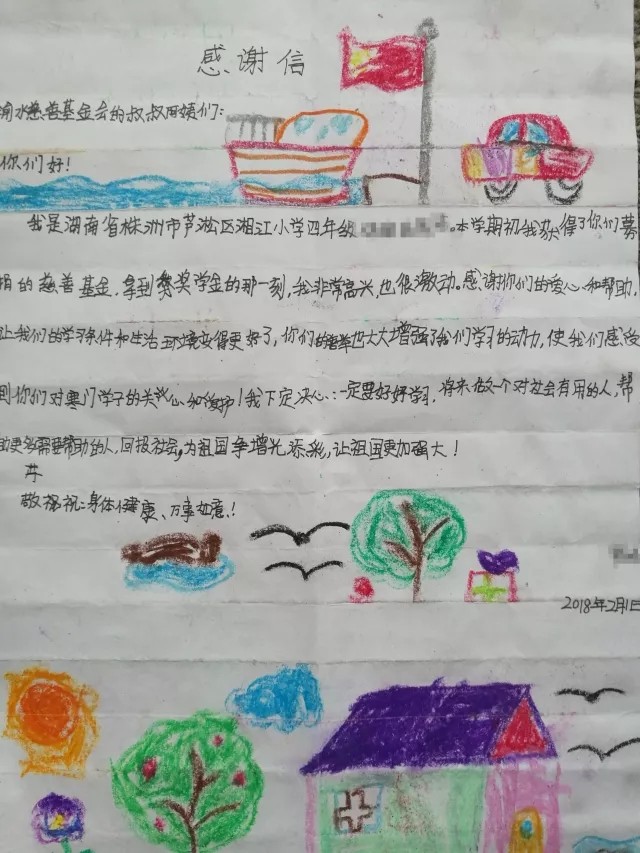 感谢信
渝水慈善基金会的叔叔阿姨们：
你们好！
我是湖南省株洲市芦淞区湘江小学四年级 。本学期初我获得了你们募
捐的慈善基金，拿到奖学金的那一刻，我非常高兴，也很激动。感谢你们的爱心和帮助，
让我们的学习条件和生活环境变得更好了，你们的善举也大大增强了我们学习的动力，使我们感受
到你们对寒门学子的关心和爱护！我下定决心：一定要好好学习，将来做一个对社会有用的人，帮
助更多需要帮助的人，回报社会，为祖国争增光添彩，让祖国更加强大！
并
敬祝福祝：身体健康、万事如意！
2018年2月1日